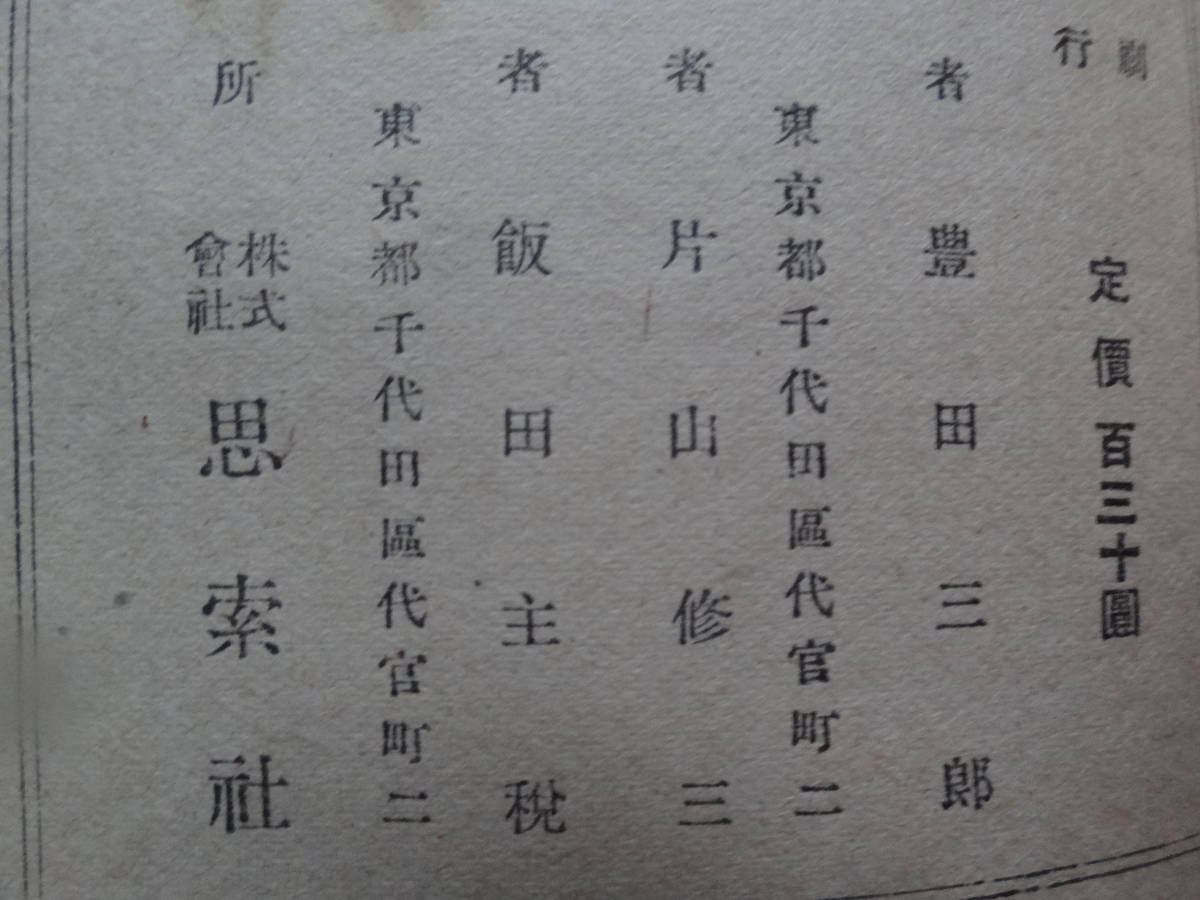 刷
行
定價百三十圓
者 豊田三郎
東京都千代田區代官町二
者 片山修三
者 飯田主税
東京都千代田區代官町二
所 株式會社 思索社